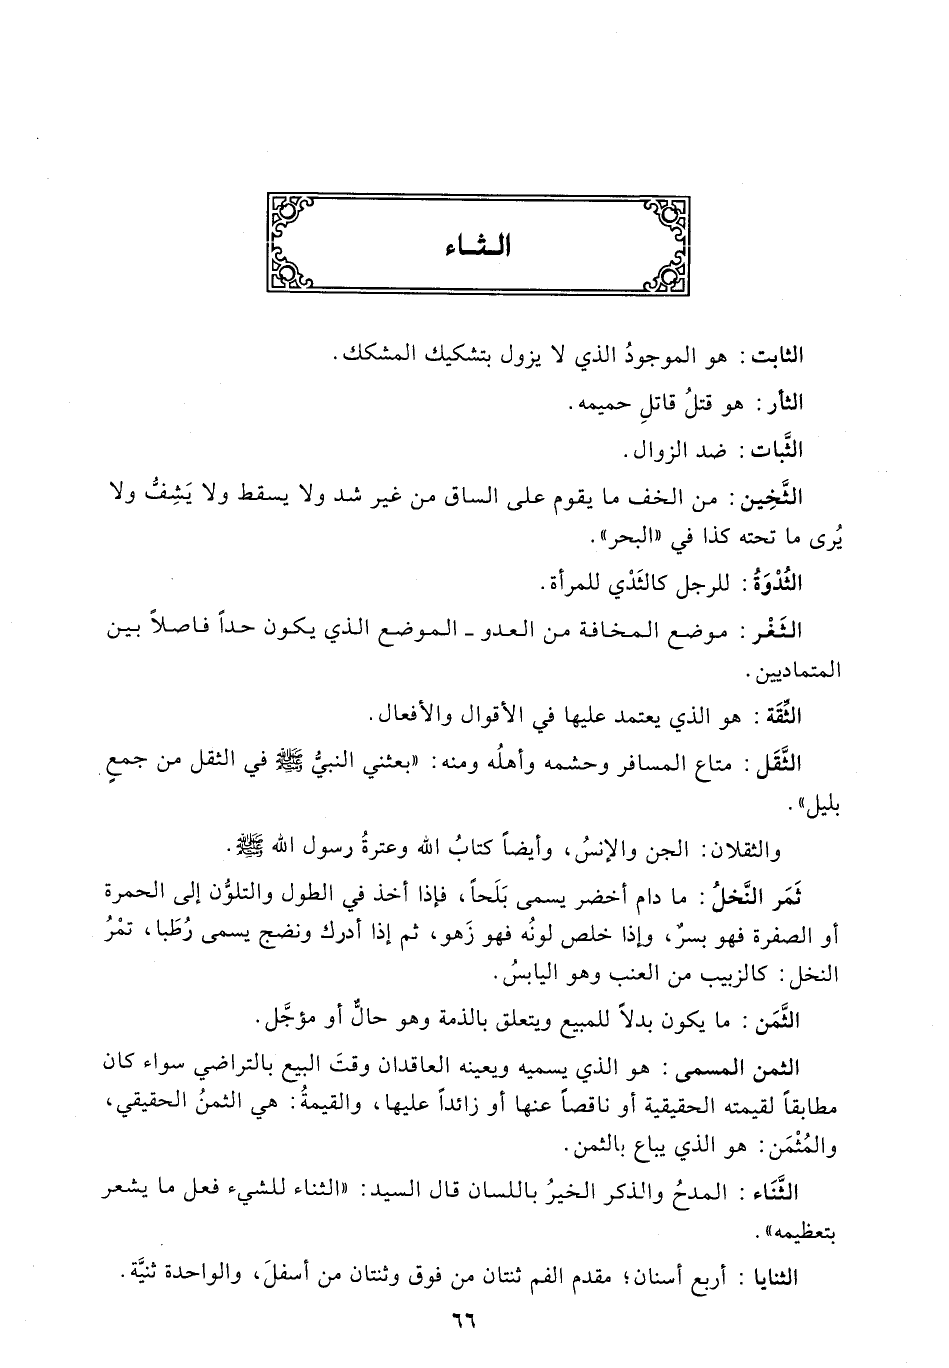 الثاء
الثابت: هو الموجودُ الذي لا يزول بتشكيك المشكك.
الثأر: هو قتلُ قاتلِ حميمه.
الثَّبات: ضد الزوال.
الثَّخِين: من الخف ما يقوم على الساق من غير شد ولا يسقط ولا يَشِفُّ ولا
يُرى ما تحته كذا في «البحر».
الثُدْوَةُ: للرجل كالثَدْي للمرأة.
الثَغْر: موضع المخافة من العدو ـ الموضع الذي يكون حداً فاصلاً بين
المتماديين.
الثِّقَة: هو الذي يعتمد عليها في الأقوال والأفعال.
الثَّقَل: متاع المسافر وحشمه وأهلُه ومنه: «بعثني النبيُّ ﷺ في الثقل من جمعٍ
بليل».
والثقلان: الجن والإنسُ، وأيضاً كتابُ الله وعترةُ رسول الله ﷺ.
ثَمَر النَّخلُ: ما دام أخضر يسمى بَلَحاً، فإذا أخذ في الطول والتلوُّن إلى الحمرة
أو الصفرة فهو بسرٌ، وإذا خلص لونُه فهو زَهو، ثم إذا أدرك ونضج يسمى رُطَبا، تمْرُ
النخل: كالزبيب من العنب وهو اليابسُ.
الثَّمَن: ما يكون بدلاً للمبيع ويتعلق بالذمة وهو حالٌّ أو مؤجَّل.
الثمن المسمى: هو الذي يسميه ويعينه العاقدان وقتَ البيع بالتراضي سواء كان
مطابقاً لقيمته الحقيقية أو ناقصاً عنها أو زائداً عليها، والقيمةُ: هي الثمنُ الحقيقي،
والمُثْمَن: هو الذي يباع بالثمن.
الثَّنَاء: المدحُ والذكر الخيرُ باللسان قال السيد: «الثناء للشيء فعل ما يشعر
بتعظيمه».
الثنايا: أربع أسنان؛ مقدم الفم ثنتان من فوق وثنتان من أسفلَ، والواحدة ثنيَّة.
٦٦